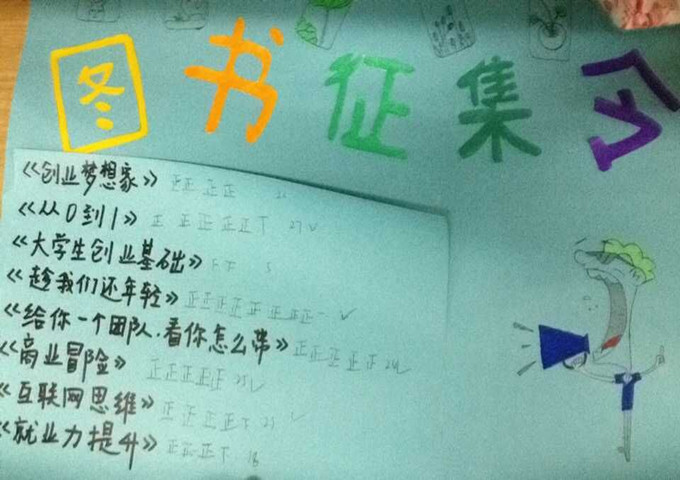 图书征集令
《创业梦想家》正正正正
《从0到1》正正正正正下 27✓
《大学生创业基础》
《趁我们还年轻》正正正正正正正正一 ✓
《给你一个团队.看你怎么带》正正正正正 24✓
《商业冒险》正正正正正 25✓
《互联网思维》正正正正下 23✓
《就业力提升》正正正下 18